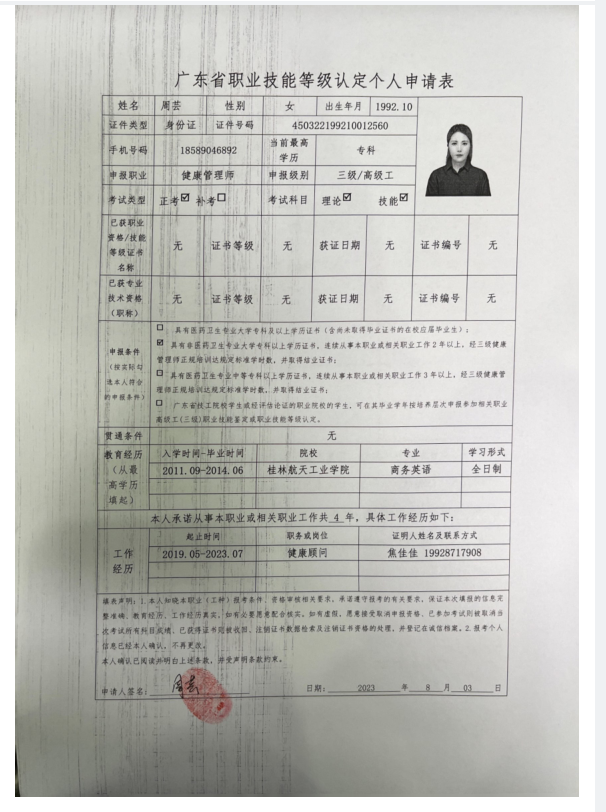 广东省职业技能等级认定个人申请表
姓名 周芸 性别 女 出生年月 1992.10
证件类型 身份证 证件号码 450322199210012560
手机号码 18589046892 当前最高学历 专科
申报职业 健康管理师 申报级别 三级/高级工
考试类型 正考☑ 补考☐ 考试科目 理论☑ 技能☑
已获职业资格/技能等级证书名称 无 证书等级 无 获证日期 无 证书编号 无
已获专业技术资格（职称） 无 证书等级 无 获证日期 无 证书编号 无
申报条件（按实际勾选本人符合的申报条件）
☐ 具有医药卫生专业大学专科及以上学历证书（含尚未取得毕业证书的在校应届毕业生）；
☑ 具有非医药卫生专业大学专科以上学历证书，连续从事本职业或相关职业工作2年以上，经三级健康
管理师正规培训达规定标准学时数，并取得结业证书；
☐ 具有医药卫生专业中等专科以上学历证书，连续从事本职业或相关职业工作3年以上，经三级健康管
理师正规培训达规定标准学时数，并取得结业证书；
☐ 广东省技工院校学生或经评估论证的职业院校的学生，可在其毕业学年按培养层次申报参加相关职业
高级工(三级)职业技能鉴定或职业技能等级认定。
贯通条件 无
教育经历（从最高学历填起） 入学时间-毕业时间 院校 专业 学习形式
2011.09-2014.06 桂林航天工业学院 商务英语 全日制
本人承诺从事本职业或相关职业工作共 4 年，具体工作经历如下：
工作经历 起止时间 职务或岗位 证明人姓名及联系方式
2019.05-2023.07 健康顾问 焦佳佳 19928717908
填表声明：1.本人知晓本职业（工种）报考条件、资格审核相关要求，承诺遵守报考的有关要求，保证本次填报的信息完
整准确、教育经历、工作经历真实，如有必要愿意配合核实。如有虚假，愿意接受取消申报资格、已参加考试则被取消当
次考试所有科目成绩、已获得证书则被收回、注销证书数据检索及注销证书资格的处理，并登记在诚信档案。2.报考个人
信息已经本人确认，不再更改。
本人确认已阅读并明白上述条款，并受声明条款约束。
申请人签名： 周芸 日期： 2023 年 8 月 03 日